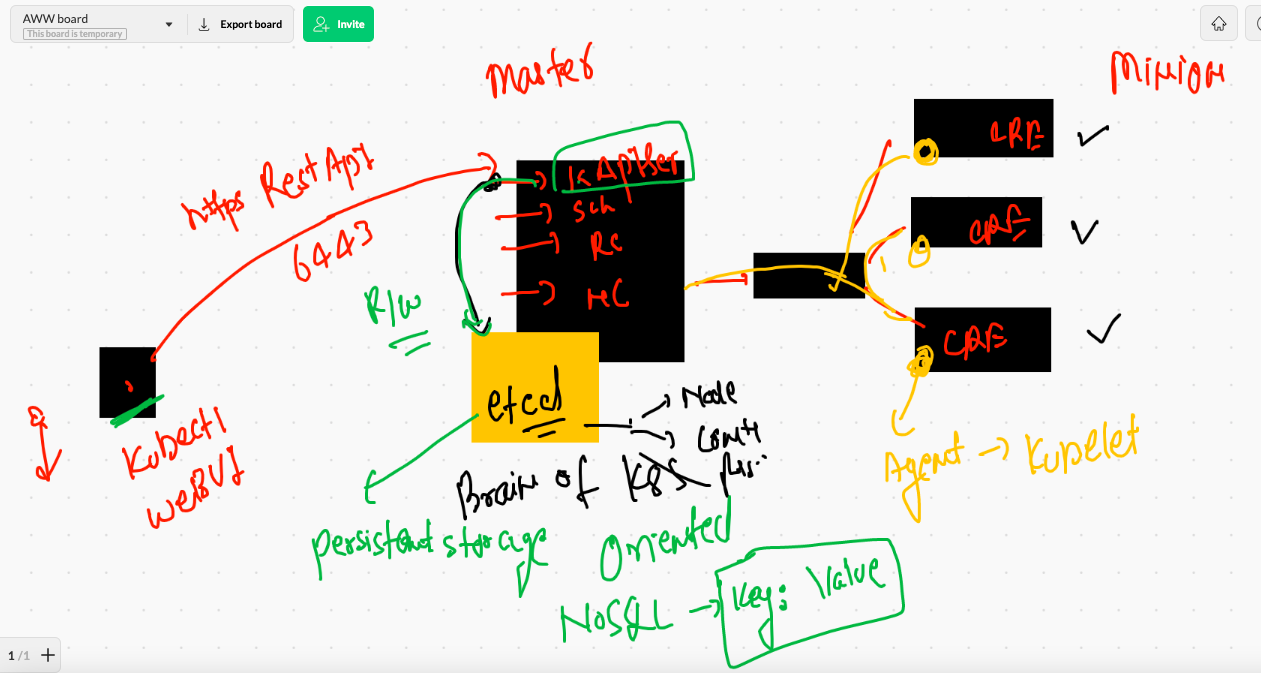 AWW board
This board is temporary
Export board
Invite
Master
Minion
https Rest Api
6443
K ApiSer
Sch
RC
NC
R/W
CRE
CRE
CRE
etcd
Node
Brain of K8S
Kubectl
webUI
Agent → Kubelet
persistent storage
oriented
NoSQL → Key: Value
1 /1